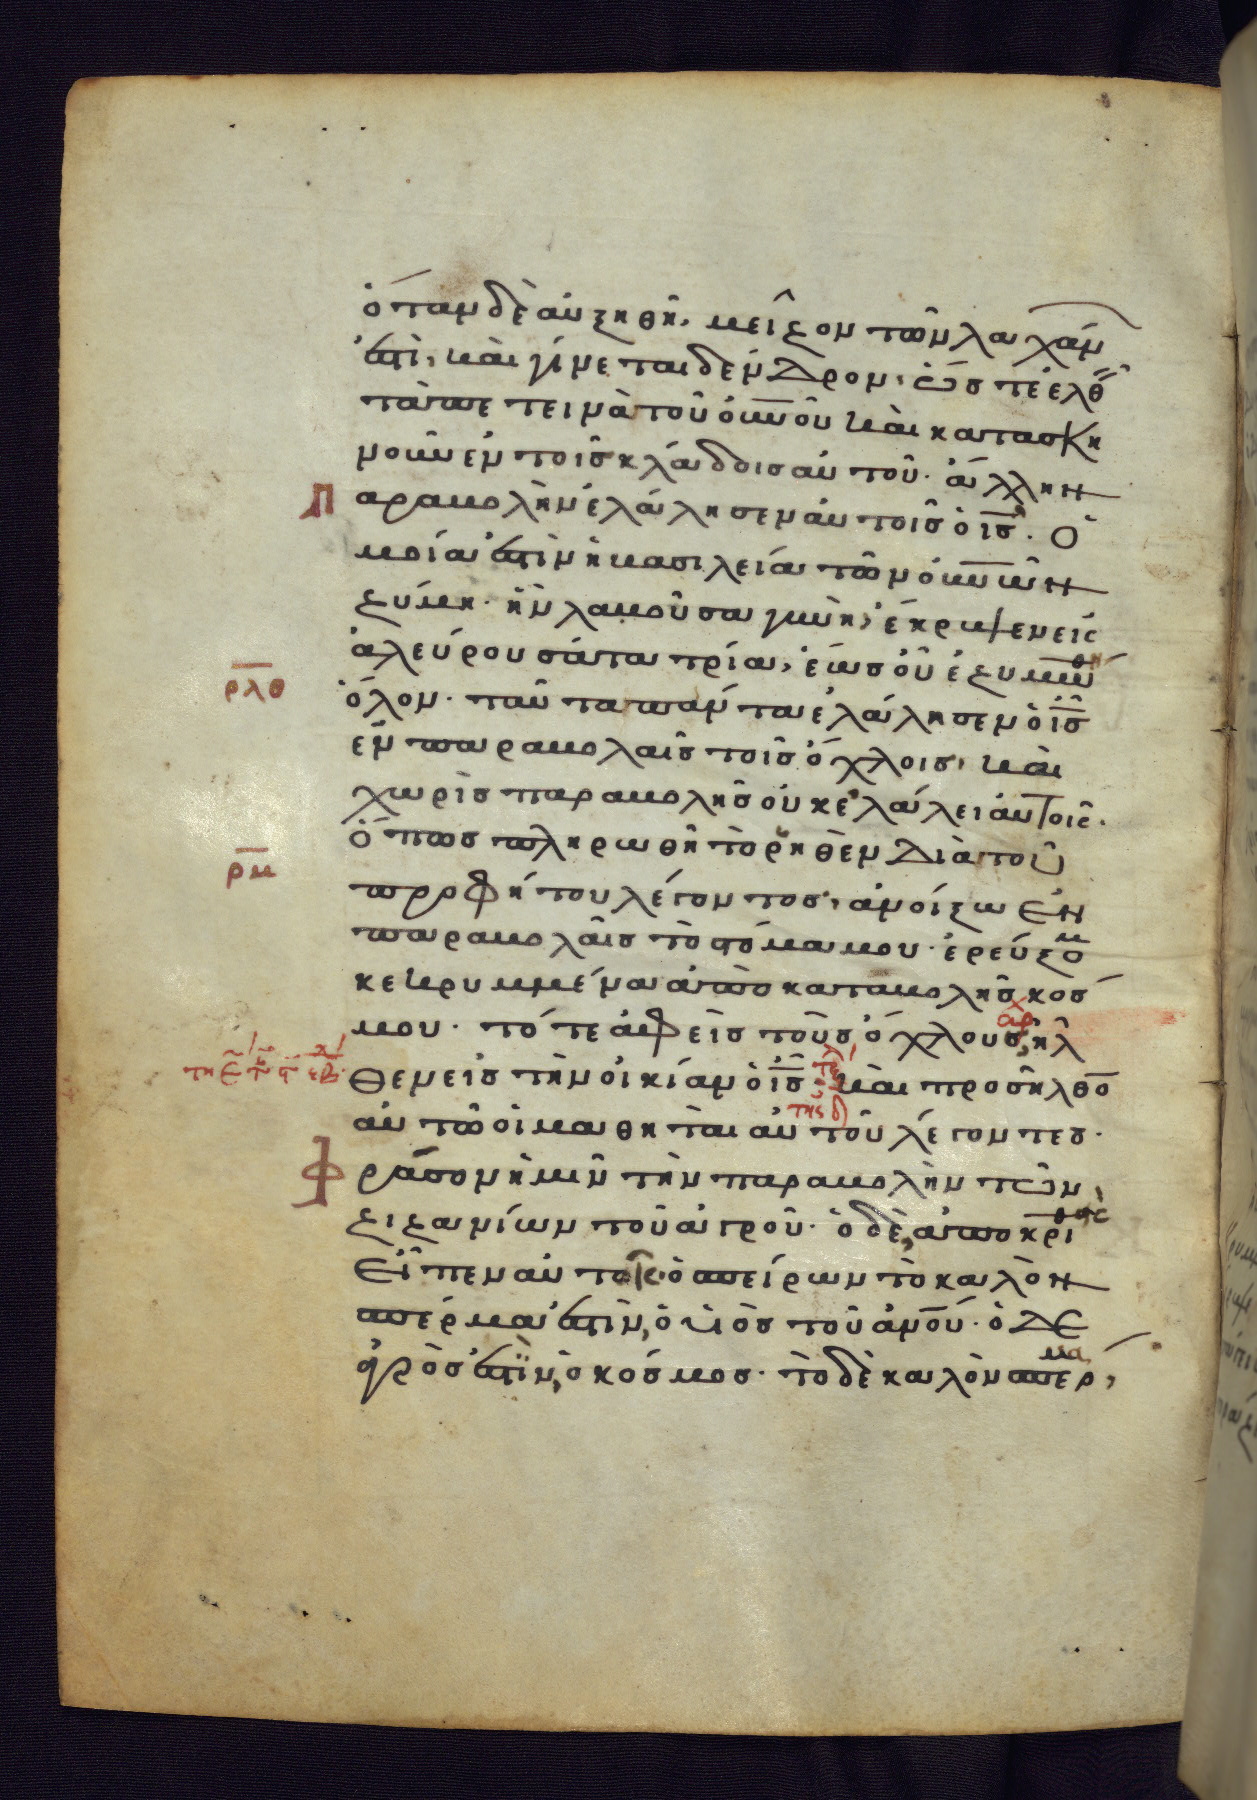 ὅταν δὲ αὐξηθῆ, μεῖζον τῶν λαχάν
ἐστὶ, καὶ γίνεται δένδρον, ὥστε ἐλθ
τὰ πετεινὰ τοῦ οὐνοῦ καὶ κατασκη
νοῦν ἐν τοῖς κλάδοις αὐτοῦ. ἄλλην
Παραβολὴν ἐλάλησεν αὐτοῖς ὁ ις. Ὁ
μοία ἐστὶν ἡ βασιλεία τῶν οὐνῶν
ζύμη. ἣν λαβοῦσα γυνὴ, ἐνέκρυψεν εἰς
ἀλεύρου σάτα τρία, ἕως οὗ ἐζυμώθη
ρλθ
ὅλον. ταῦτα πάντα ἐλάλησεν ὁ ις
ἐν παραβολαῖς τοῖς ὄχλοις, καὶ
χωρὶς παραβολῆς οὐκ ἐλάλει αὐτοῖς.
ρμ
Ὅπως πληρωθῆ τὸ ῥηθὲν διὰ τοῦ
προφήτου λέγοντος, ἀνοίξω ἐν
παραβολαῖς τὸ στόμα μου. ἐρεύξομ
κεκρυμμένα ἀπὸ καταβολῆς κόσ
μου. τότε ἀφεὶς τοὺς ὄχλους, ἦλ
αρχ
θεν εἰς τὴν οἰκίαν ὁ ις. καὶ προσῆλθο
τε
της δ
αὐτῶ οἱ μαθηταὶ αὐτοῦ λέγοντες.
Φράσον ἡμῖν τὴν παραβολὴν τῶν
ζιζανίων τοῦ ἀγροῦ. ὁ δὲ, ἀποκριθεὶς
εἶπεν αὐτοῖς, ὁ σπείρων τὸ καλὸν
σπέρμα ἐστὶν, ὁ υἱὸς τοῦ ἀνου. ὁ δὲ
ἀγρὸς ἐστὶν, ὁ κόσμος. τὸ δὲ καλὸν σπέρμα,